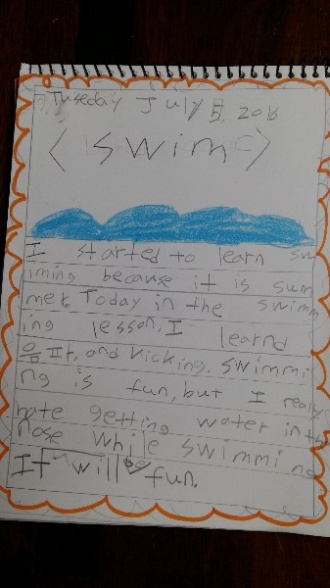 Tuseday July 5, 2016
< swim >
I started to learn sw
iming because it is sum
mer Today in the swimm
ing lesson, I learnd
음파, and kicking. swimmi
ng is fun, but I really
hate getting water in the
nose while swimming
It will be fun.